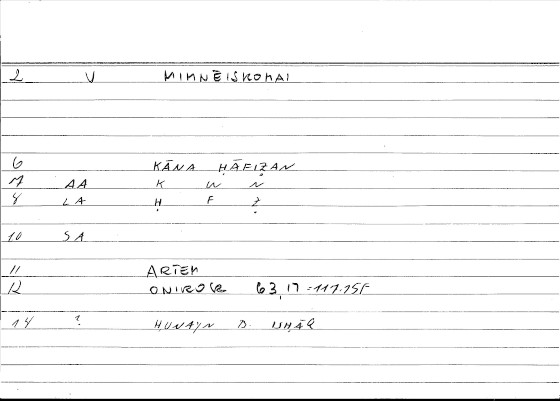 2 V MIMNĒISKOMAI
6 KĀNA ḤĀFIẒAN
7 AA K W N
8 LA Ḥ F Ẓ
10 SA
11 ARTEM
12 ONIROCR 63,17 = 117.15F
14 ? ḤUNAYN B. ISḤĀQ